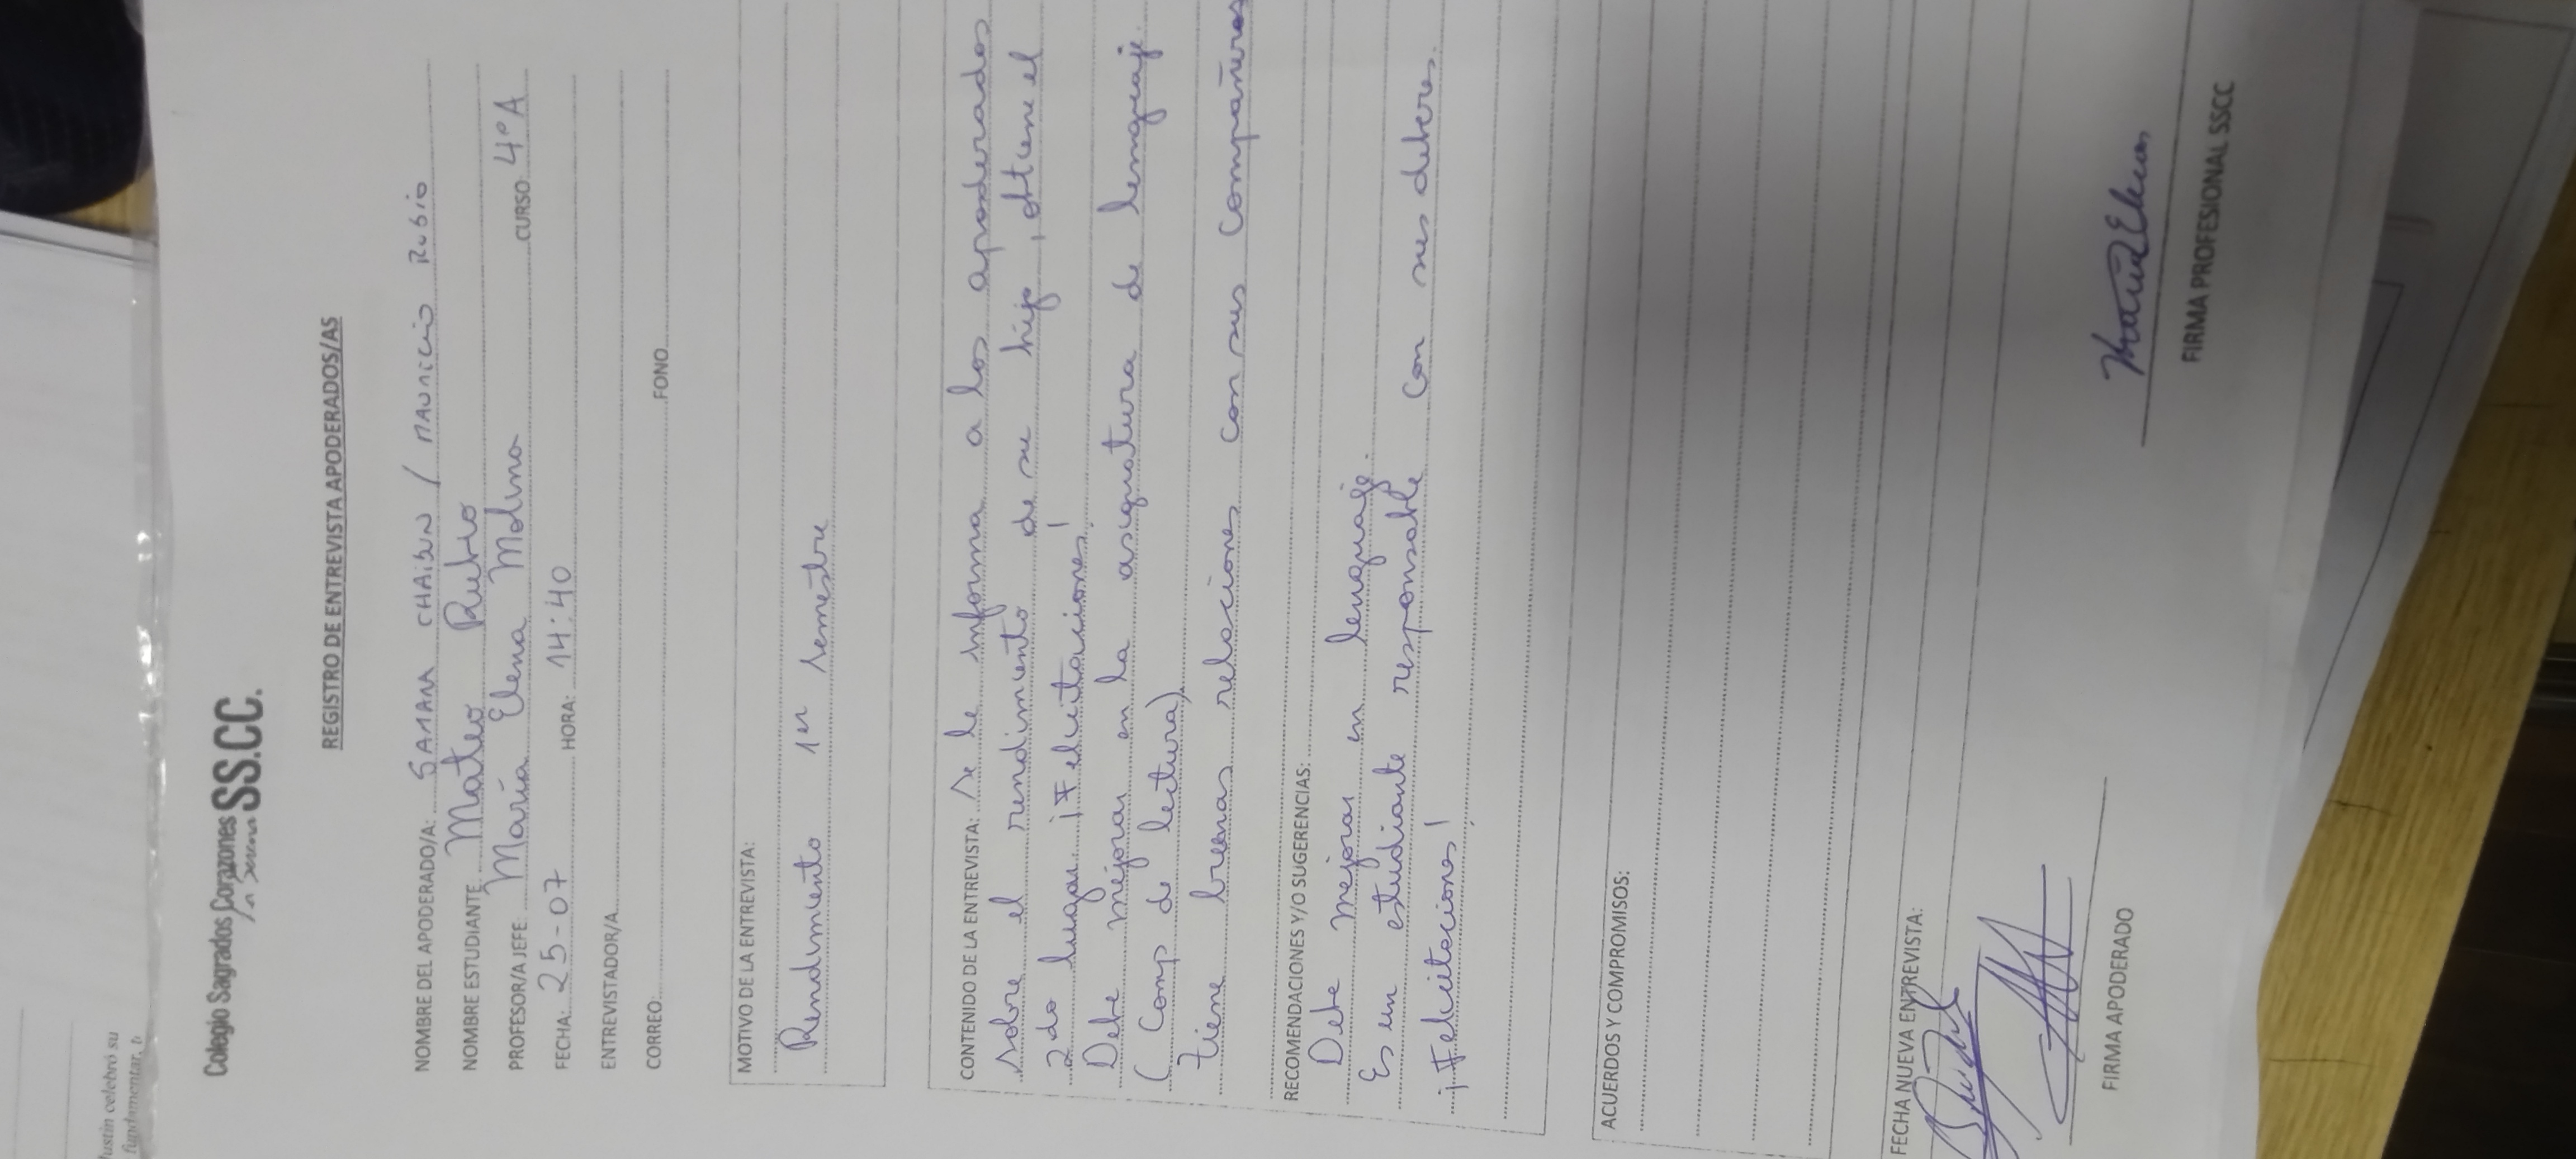 Colegio Sagrados Corazones SS.CC.
REGISTRO DE ENTREVISTA APODERADOS/AS
NOMBRE DEL APODERADO/A: SAMARA CHAIBUN / MAURICIO RUBIO
NOMBRE ESTUDIANTE Mateo Rubio
PROFESOR/A JEFE: María Elena Moreno CURSO: 4°A
FECHA: 25-07 HORA: 14:40
ENTREVISTADOR/A
CORREO: FONO
MOTIVO DE LA ENTREVISTA:
Rendimiento 1er semestre
CONTENIDO DE LA ENTREVISTA: Se le informa a los apoderados
sobre el rendimiento de su hijo, obtiene el
2do lugar ¡Felicitaciones!
Debe mejorar en la asignatura de lenguaje.
(Comp de lectura)
Tiene buenas relaciones con sus compañeros
RECOMENDACIONES Y/O SUGERENCIAS:
Debe mejorar en lenguaje.
Es un estudiante responsable con sus deberes.
¡Felicitaciones!
ACUERDOS Y COMPROMISOS:
FECHA NUEVA ENTREVISTA:
FIRMA APODERADO
FIRMA PROFESIONAL SSCC
ustin celebró su
fundamentar,